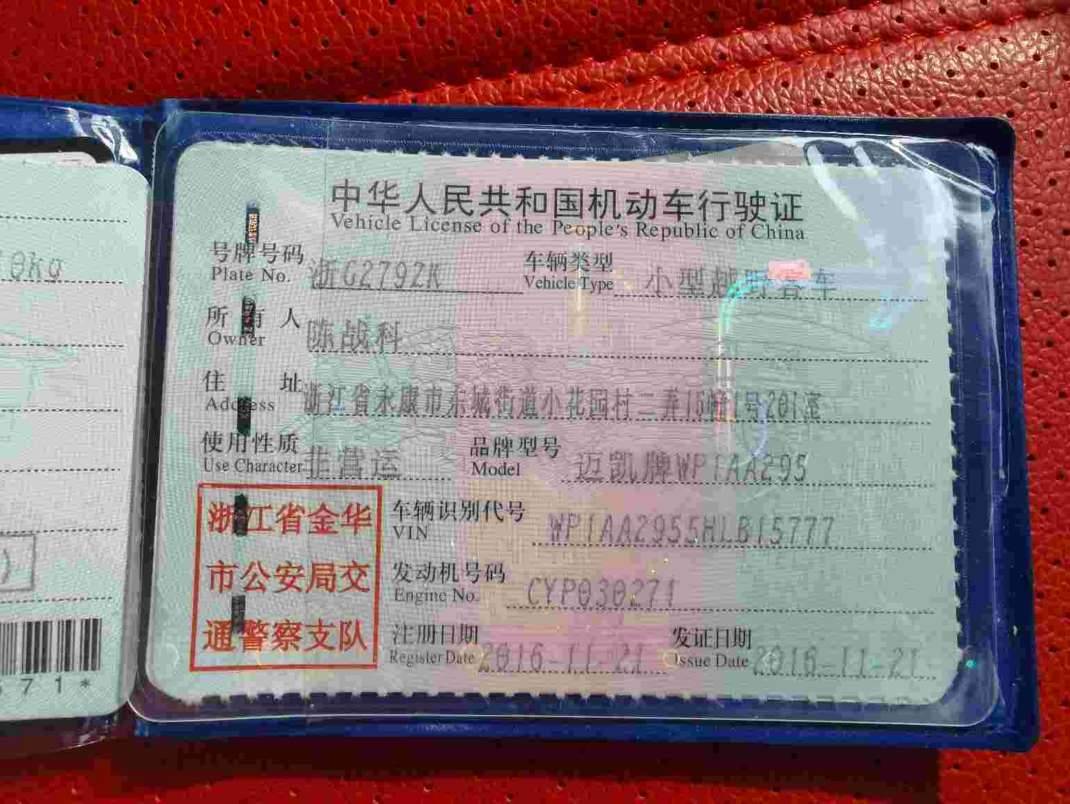 0kg
571*
中华人民共和国机动车行驶证
Vehicle License of the People's Republic of China
号牌号码 浙G279ZK 车辆类型 小型越野客车
Plate No. Vehicle Type
所有人 陈战科
Owner
住址 浙江省永康市东城街道小花园村二弄15幢1号201室
Address
使用性质 非营运 品牌型号 迈凯牌WP1AA295
Use Character Model
浙江省金华
市公安局交
通警察支队
车辆识别代号 WP1AA2955HLB15777
VIN
发动机号码 CYP030271
Engine No.
注册日期 2016-11-21 发证日期 2016-11-21
Register Date Issue Date